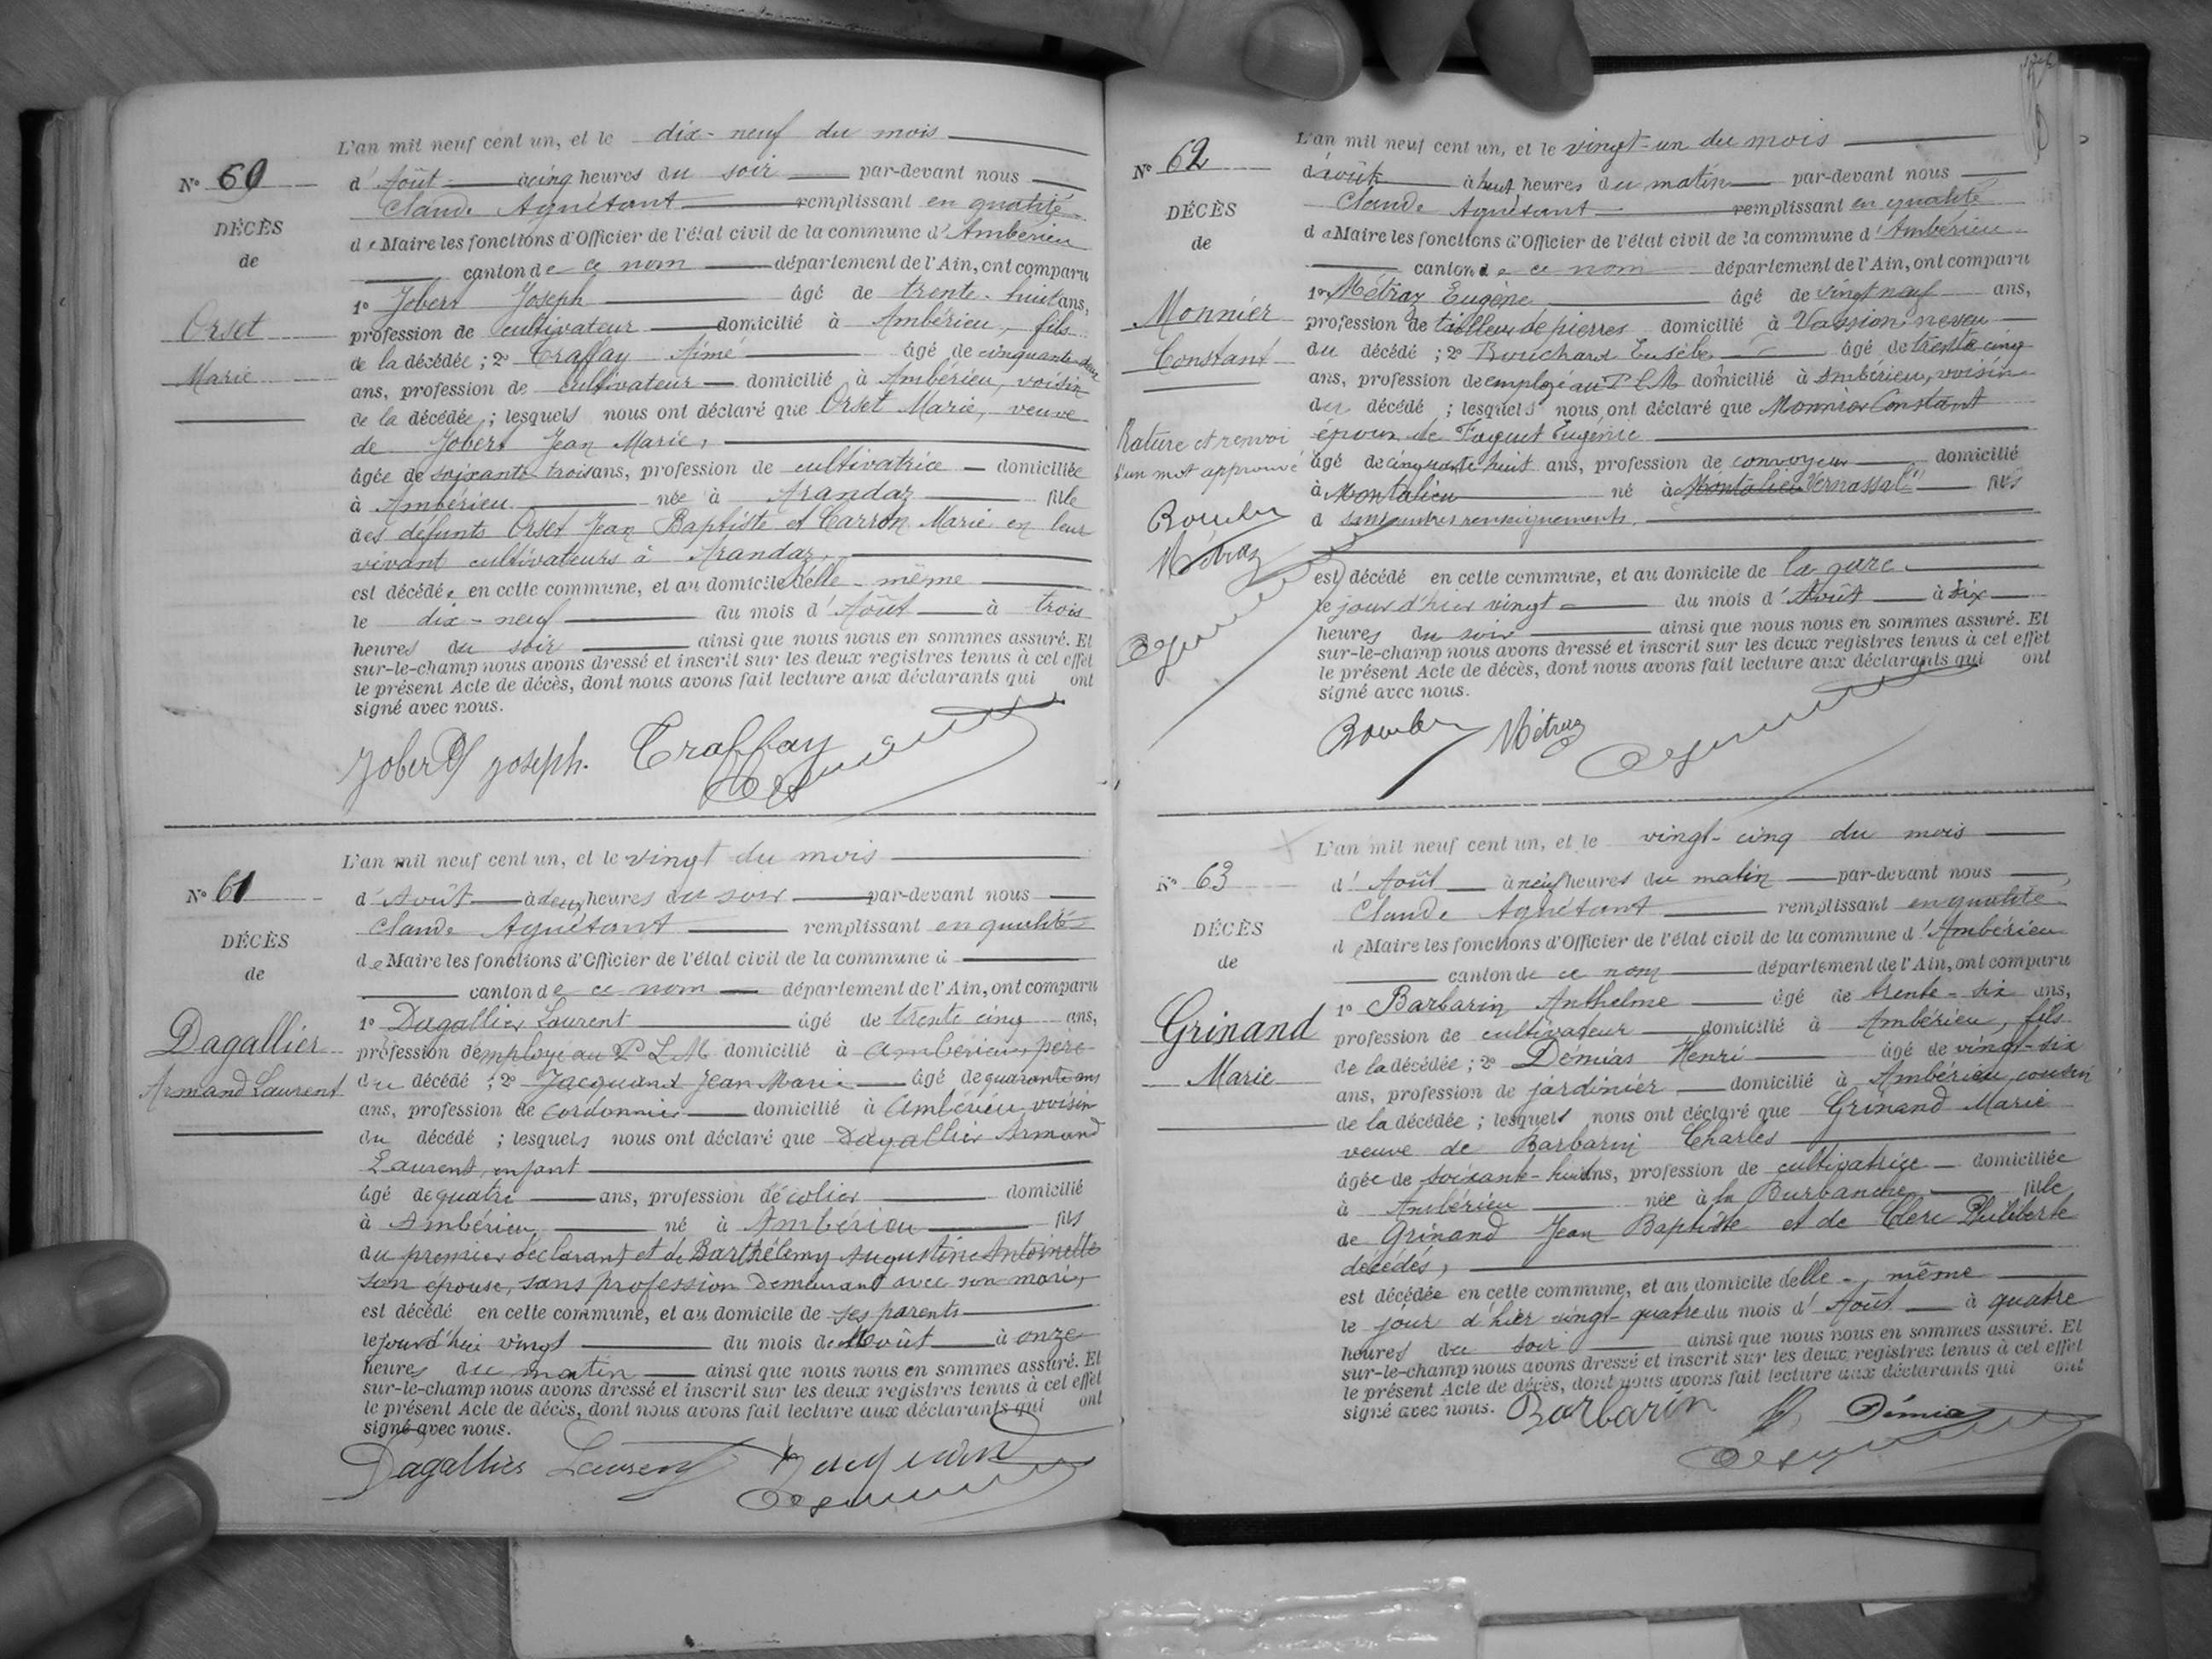 L'an mil neuf cent un, et le dix-neuf du mois
N° 60
d'Août à cinq heures du soir par-devant nous
Claude Agnétant remplissant en qualité
DÉCÈS
de Maire les fonctions d'Officier de l'état civil de la commune d'Ambérieu
de
canton de ce nom département de l'Ain, ont comparu
1° Jobert Joseph âgé de trente-huit ans,
Orset
profession de cultivateur domicilié à Ambérieu, fils
de la décédée ; 2° Traffay Aimé âgé de cinquante-deux
Marie
ans, profession de cultivateur domicilié à Ambérieu, voisin
de la décédée ; lesquels nous ont déclaré que Orset Marie, veuve
de Jobert Jean Marie,
âgée de soixante-trois ans, profession de cultivatrice domiciliée
à Ambérieu née à Arandaz fille
des défunts Orset Jean Baptiste et Carron Marie en leur
vivant cultivateurs à Arandaz,
est décédée en cette commune, et au domicile d'elle-même
le dix-neuf du mois d'Août à trois
heures du soir ainsi que nous nous en sommes assuré. Et
sur-le-champ nous avons dressé et inscrit sur les deux registres tenus à cet effet
le présent Acte de décès, dont nous avons fait lecture aux déclarants qui ont
signé avec nous.
Jobert Joseph. Traffay
L'an mil neuf cent un, et le vingt du mois
N° 61
d'Août à deux heures du soir par-devant nous
Claude Agnétant remplissant en qualité
DÉCÈS
de Maire les fonctions d'Officier de l'état civil de la commune d
de
canton de ce nom département de l'Ain, ont comparu
1° Dagallier Laurent âgé de trente cinq ans,
Dagallier
profession d'employé au P L M domicilié à Ambérieu, père
Armand Laurent
du décédé ; 2° Jacquand Jean Marie âgé de quarante ans
ans, profession de cordonnier domicilié à Ambérieu, voisin
du décédé ; lesquels nous ont déclaré que Dagallier Armand
Laurent, enfant
âgé de quatre ans, profession d'écolier domicilié
à Ambérieu né à Ambérieu fils
du premier déclarant et de Barthélemy Augustine Antoinette
son épouse, sans profession demeurant avec son mari,
est décédé en cette commune, et au domicile de ses parents
le jourd'hui vingt du mois d'Août à onze
heures du matin ainsi que nous nous en sommes assuré. Et
sur-le-champ nous avons dressé et inscrit sur les deux registres tenus à cet effet
le présent Acte de décès, dont nous avons fait lecture aux déclarants qui ont
signé avec nous.
Dagallier Laurent Jacquand
L'an mil neuf cent un, et le vingt-un du mois
N° 62
d'août à huit heures du matin par-devant nous
Claude Agnétant remplissant en qualité
DÉCÈS
de Maire les fonctions d'Officier de l'état civil de la commune d'Ambérieu
de
canton de ce nom département de l'Ain, ont comparu
1° Métraz Eugène âgé de vingt neuf ans,
Monnier
profession de tailleur de pierres domicilié à neveu
Constant
du décédé ; 2° Bouchard Eusèbe âgé de trente cinq
ans, profession de employé au P L M domicilié à Ambérieu, voisin
du décédé ; lesquels nous ont déclaré que Monnier Constant
Rature et renvoi
époux de Faquet Eugénie
d'un mot approuvé
âgé de cinquante huit ans, profession de convoyeur domicilié
à Montalieu né à Montalieu Vernassal fils
d sans autres renseignements.
Métraz
est décédé en cette commune, et au domicile de la gare
le jour d'hier vingt du mois d'Août à six
heures du soir ainsi que nous nous en sommes assuré. Et
sur-le-champ nous avons dressé et inscrit sur les deux registres tenus à cet effet
le présent Acte de décès, dont nous avons fait lecture aux déclarants qui ont
signé avec nous.
Métraz
L'an mil neuf cent un, et le vingt-cinq du mois
N° 63
d'Août à neuf heures du matin par-devant nous
Claude Agnétant remplissant en qualité
DÉCÈS
de Maire les fonctions d'Officier de l'état civil de la commune d'Ambérieu
de
canton de ce nom département de l'Ain, ont comparu
1° Barbarin Anthelme âgé de trente-six ans,
Grinand
profession de cultivateur domicilié à Ambérieu, fils
de la décédée ; 2° Démias Henri âgé de vingt-six
Marie
ans, profession de jardinier domicilié à Ambérieu, cousin
de la décédée ; lesquels nous ont déclaré que Grinand Marie
veuve de Barbarin Charles
âgée de soixante-huit ans, profession de cultivatrice domiciliée
à Ambérieu née à la Burbanche fille
de Grinand Jean Baptiste et de Clerc Philiberte
décédés,
est décédée en cette commune, et au domicile d'elle-même
le jour d'hier vingt-quatre du mois d'Août à quatre
heures du soir ainsi que nous nous en sommes assuré. Et
sur-le-champ nous avons dressé et inscrit sur les deux registres tenus à cet effet
le présent Acte de décès, dont nous avons fait lecture aux déclarants qui ont
signé avec nous. Barbarin H Démias